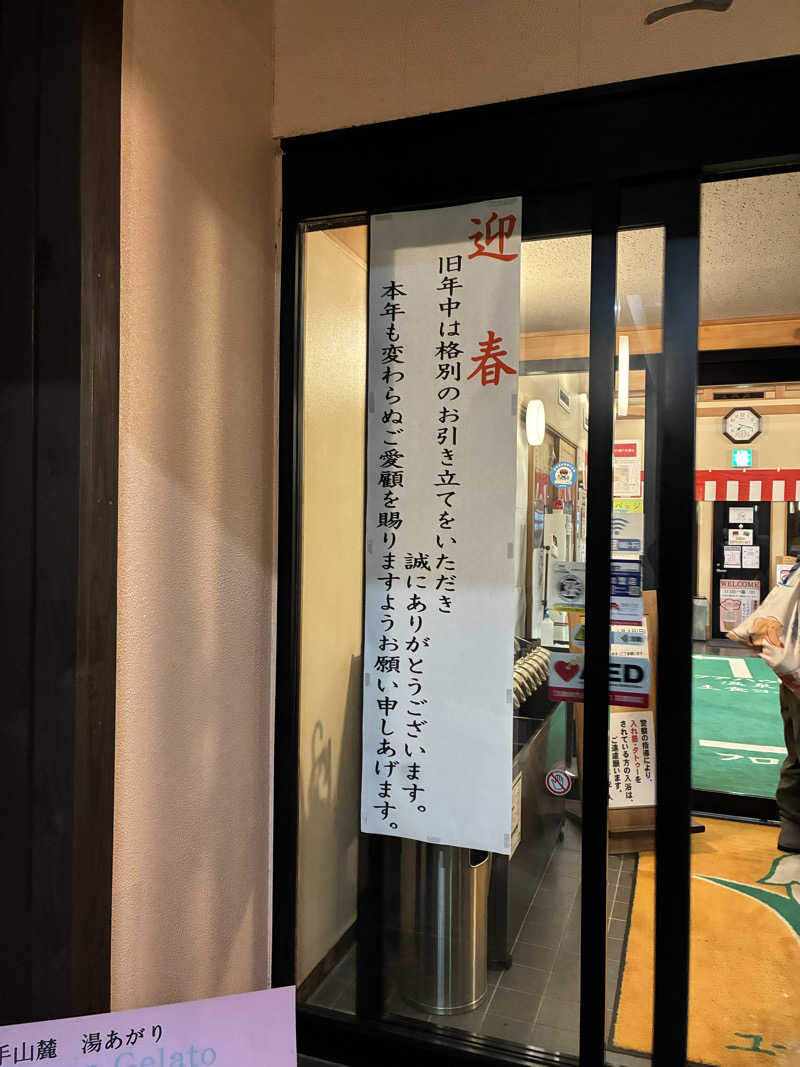 迎春
旧年中は格別のお引き立てをいただき
誠にありがとうございます。
本年も変わらぬご愛顧を賜りますようお願い申しあげます。
AED
警察の指導により、
入れ墨・タトゥーを
されている方の入浴は、
ご遠慮願います。
WELCOME
手山麓 湯あがり
Gelato